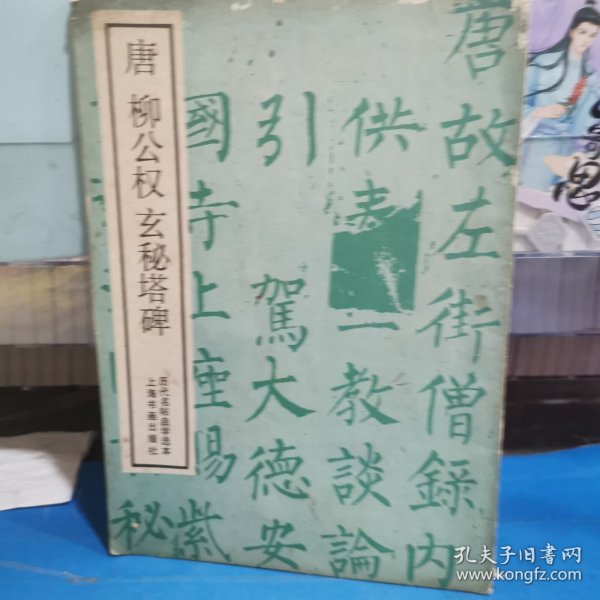 唐 柳公权 玄秘塔碑
历代名帖自学选本
上海书画出版社
唐故左街僧录内
供表一教談論
引駕大德安
國寺上座賜紫
秘
思
孔夫子旧书网
www.kongfz.com